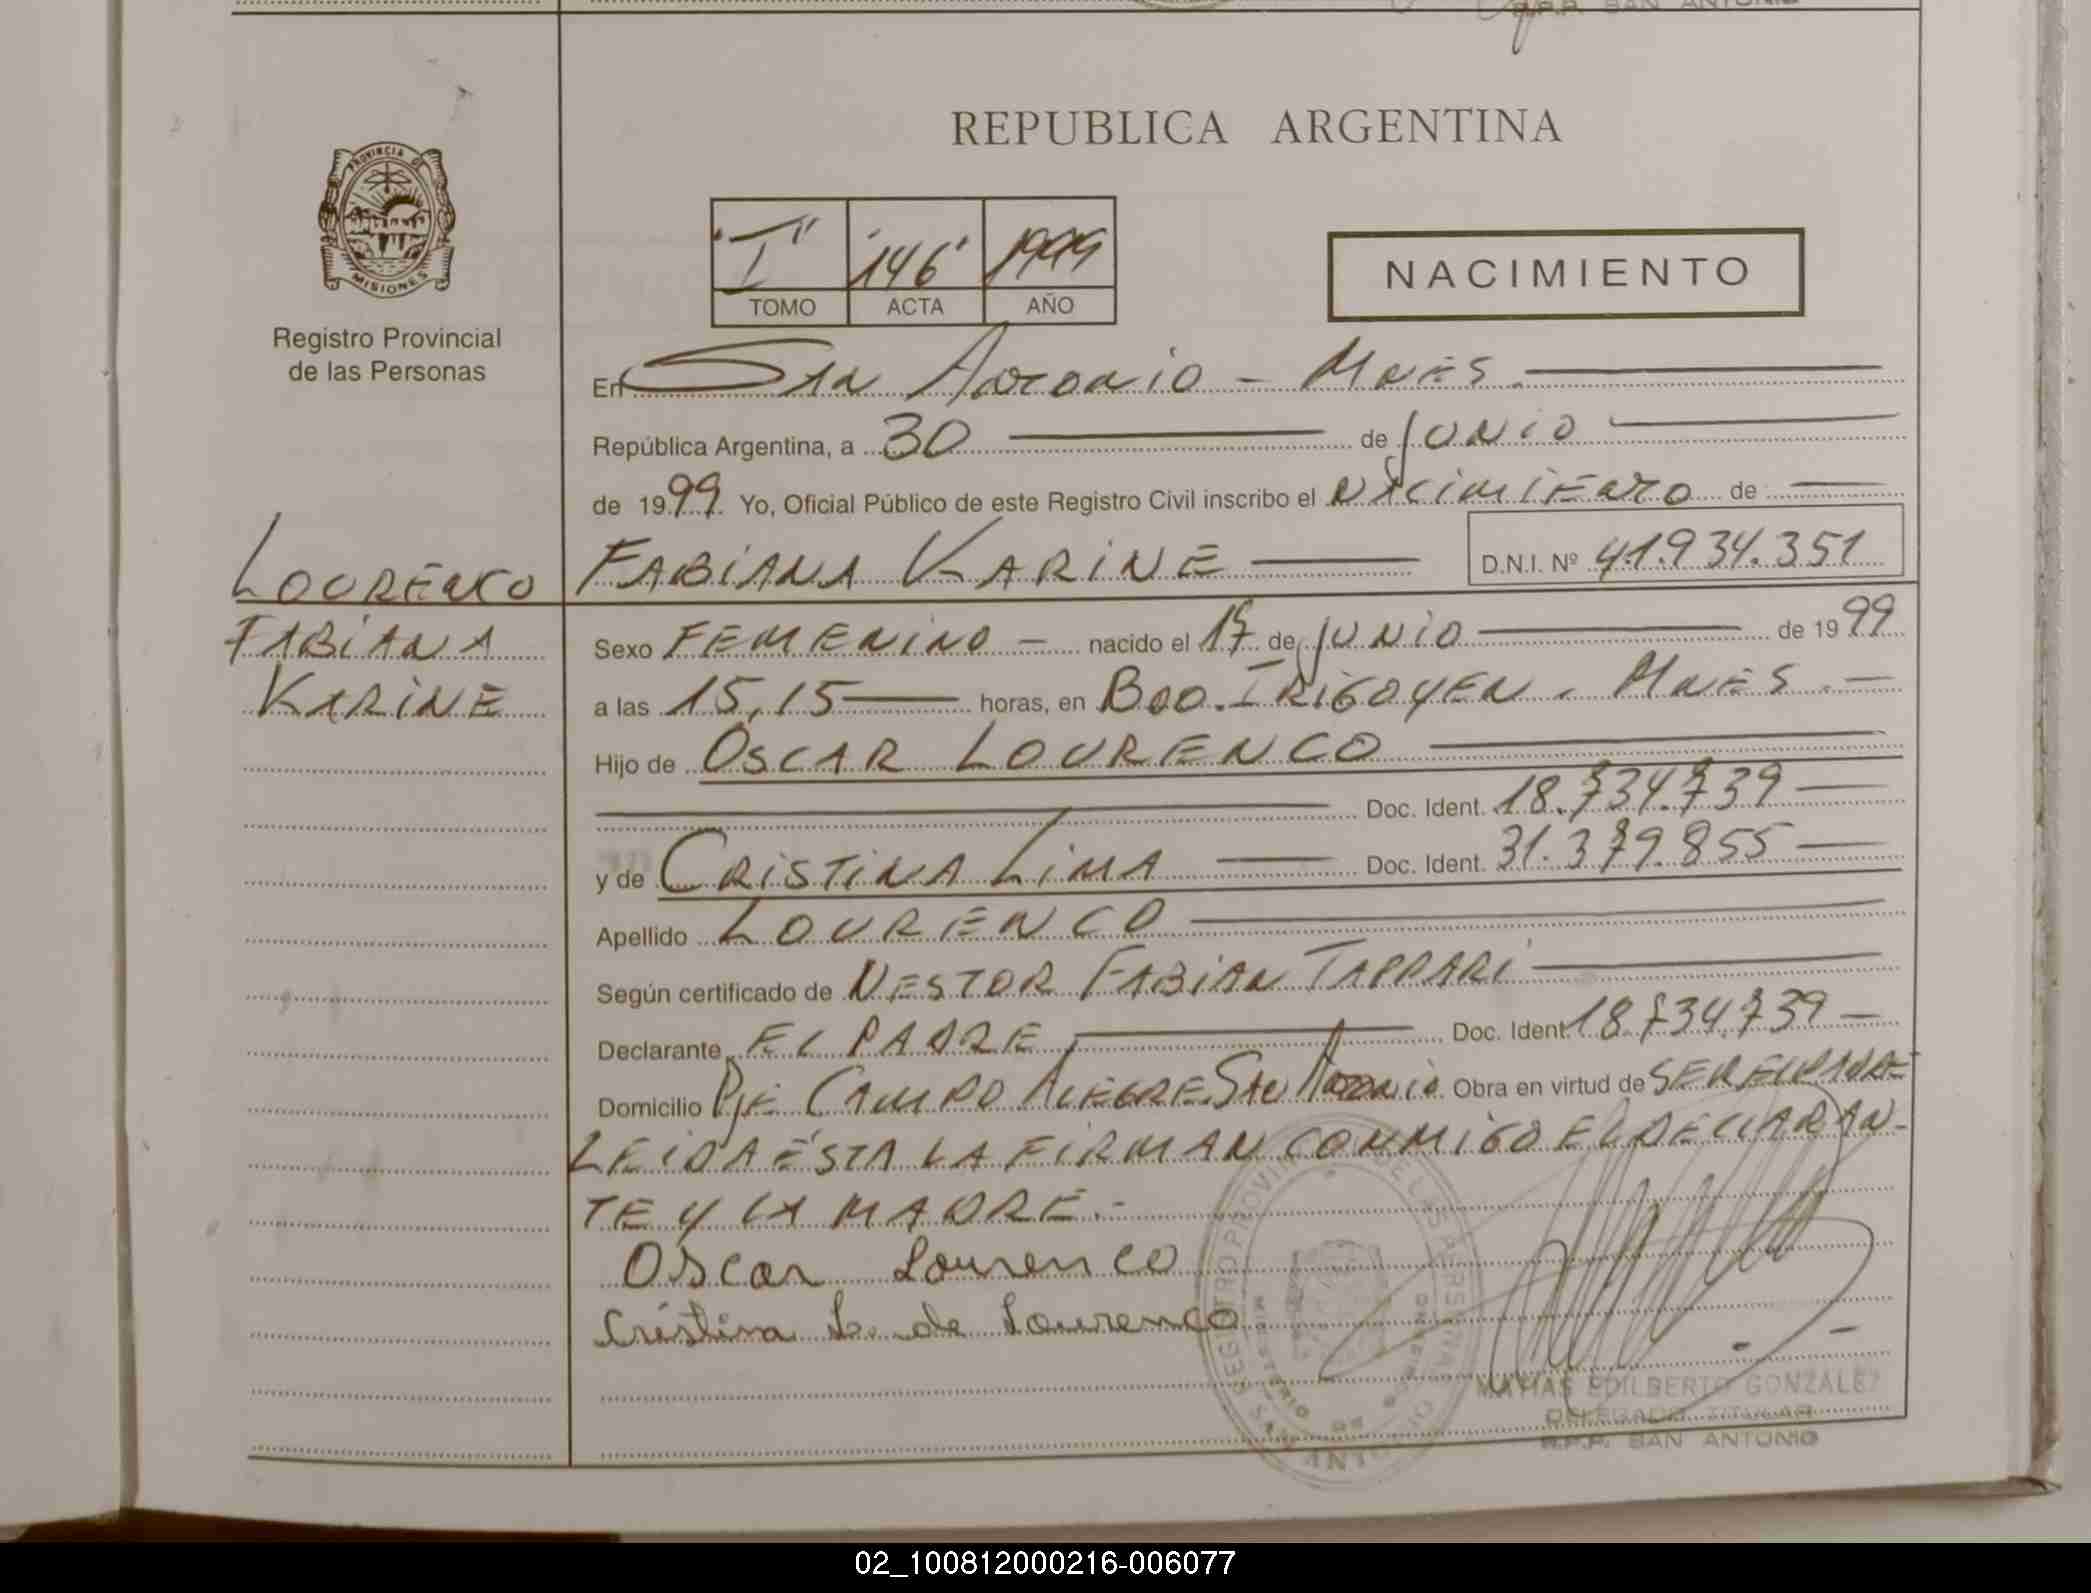 REPUBLICA ARGENTINA
PROVINCIA DE
MISIONES
Registro Provincial
de las Personas
"I" "146" 1999
TOMO ACTA AÑO
NACIMIENTO
En San Antonio - Mnes.
República Argentina, a 30 de Junio
de 1999 Yo, Oficial Público de este Registro Civil inscribo el Nacimiento de
LOURENCO FABIANA KARINE D.N.I. Nº 41.934.351
FABIANA Sexo FEMENINO - nacido el 17 de JUNIO de 1999
KARINE a las 15,15 horas, en Bdo. IRIGOYEN. MNES. -
Hijo de OSCAR LOURENCO
Doc. Ident. 18.734.739
y de CRISTINA LIMA Doc. Ident. 31.379.855
Apellido LOURENCO
Según certificado de NESTOR FABIAN TAPPARI
Declarante EL PADRE Doc. Ident. 18.734.739 -
Domicilio Pje CAMPO ALEGRE San Antonio Obra en virtud de SER EL PADRE
LEIDA ESTA LA FIRMAN CONMIGO EL DECLARAN-
TE Y LA MADRE.-
Oscar Lourenco
Cristina L. de Lourenco
MATIAS EDILBERTO GONZALEZ
DELEGADO TITULAR
R.P.P. SAN ANTONIO
02_100812000216-006077